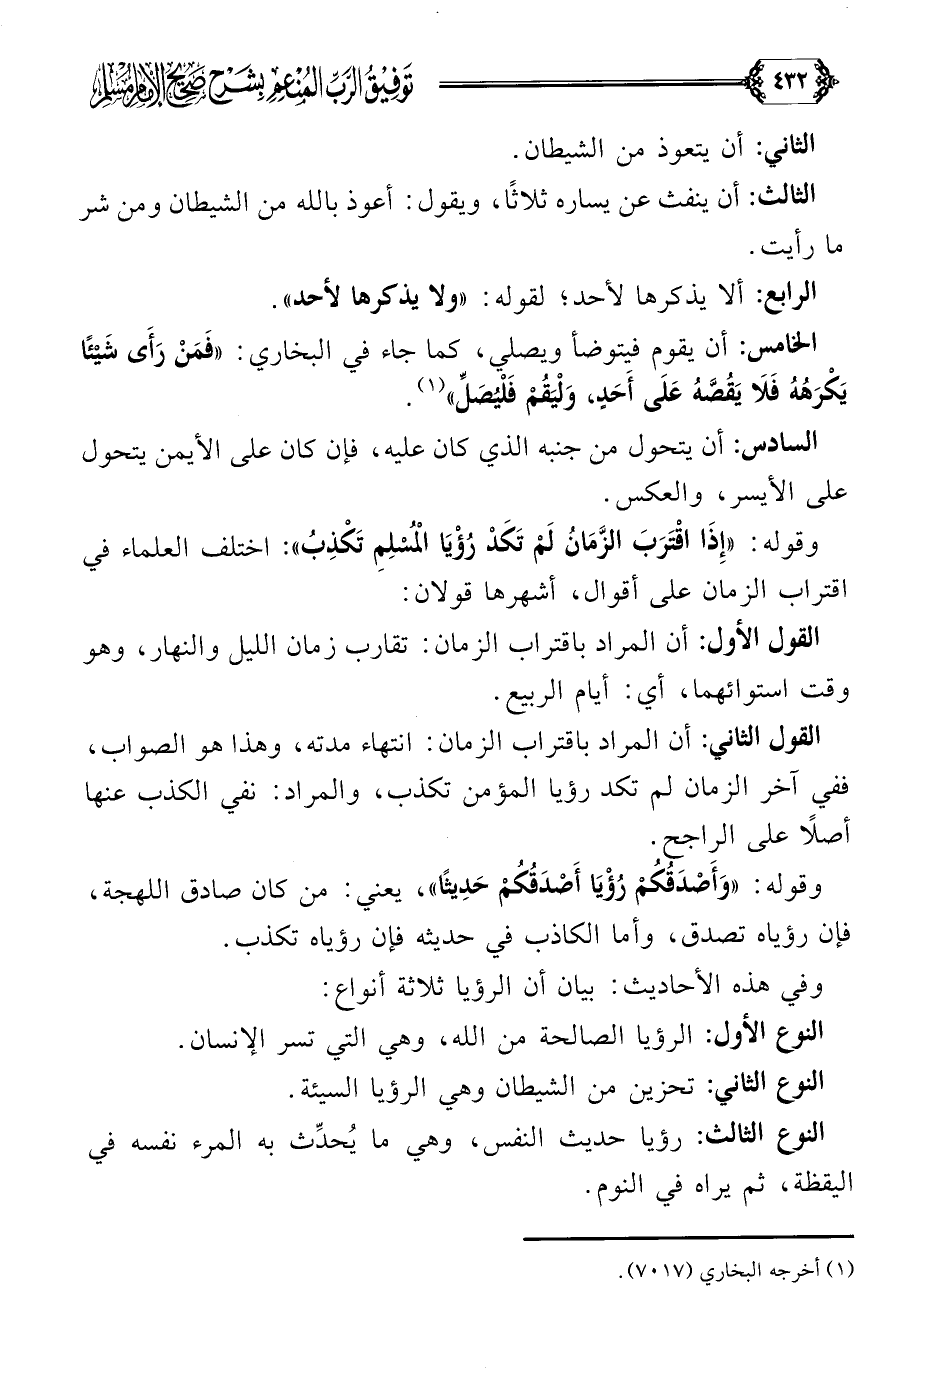 ٤٣٢ توفيق الرب المنعم بشرح صحيح الإمام مسلم
الثاني: أن يتعوذ من الشيطان.
الثالث: أن ينفث عن يساره ثلاثًا، ويقول: أعوذ بالله من الشيطان ومن شر
ما رأيت.
الرابع: ألا يذكرها لأحد؛ لقوله: «ولا يذكرها لأحد».
الخامس: أن يقوم فيتوضأ ويصلي، كما جاء في البخاري: «فَمَنْ رَأَى شَيْئًا
يَكْرَهُهُ فَلَا يَقُصَّهُ عَلَى أَحَدٍ، وَلْيَقُمْ فَلْيُصَلِّ»(١).
السادس: أن يتحول من جنبه الذي كان عليه، فإن كان على الأيمن يتحول
على الأيسر، والعكس.
وقوله: «إِذَا اقْتَرَبَ الزَّمَانُ لَمْ تَكَدْ رُؤْيَا الْمُسْلِمِ تَكْذِبُ»: اختلف العلماء في
اقتراب الزمان على أقوال، أشهرها قولان:
القول الأول: أن المراد باقتراب الزمان: تقارب زمان الليل والنهار، وهو
وقت استوائهما، أي: أيام الربيع.
القول الثاني: أن المراد باقتراب الزمان: انتهاء مدته، وهذا هو الصواب،
ففي آخر الزمان لم تكد رؤيا المؤمن تكذب، والمراد: نفي الكذب عنها
أصلًا على الراجح.
وقوله: «وَأَصْدَقُكُمْ رُؤْيَا أَصْدَقُكُمْ حَدِيثًا»، يعني: من كان صادق اللهجة،
فإن رؤياه تصدق، وأما الكاذب في حديثه فإن رؤياه تكذب.
وفي هذه الأحاديث: بيان أن الرؤيا ثلاثة أنواع:
النوع الأول: الرؤيا الصالحة من الله، وهي التي تسر الإنسان.
النوع الثاني: تحزين من الشيطان وهي الرؤيا السيئة.
النوع الثالث: رؤيا حديث النفس، وهي ما يُحدِّث به المرء نفسه في
اليقظة، ثم يراه في النوم.
(١) أخرجه البخاري (٧٠١٧).